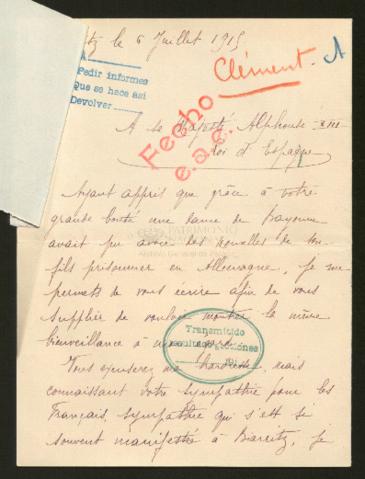 tz le 6 Juillet 1915
Clément. A
A
Pedir informes
Que se hace asi
Devolver
Fecho
e.a.e.
A sa Majesté Alphonse XIII
Roi d'Espagne
PATRIMONIO
Ayant appris que grâce à votre
grande bonté une dame de Bayonne
avait pu avoir des nouvelles de son
fils prisonnier en Allemagne, je me
permets de vous écrire afin de vous
supplier de vouloir montrer la même
bienveillance à
Transmitido
191
Vous excuserez ma hardiesse, mais
connaissant votre sympathie pour les
Français, sympathie qui s'est si
souvent manifestée à Biarritz, je